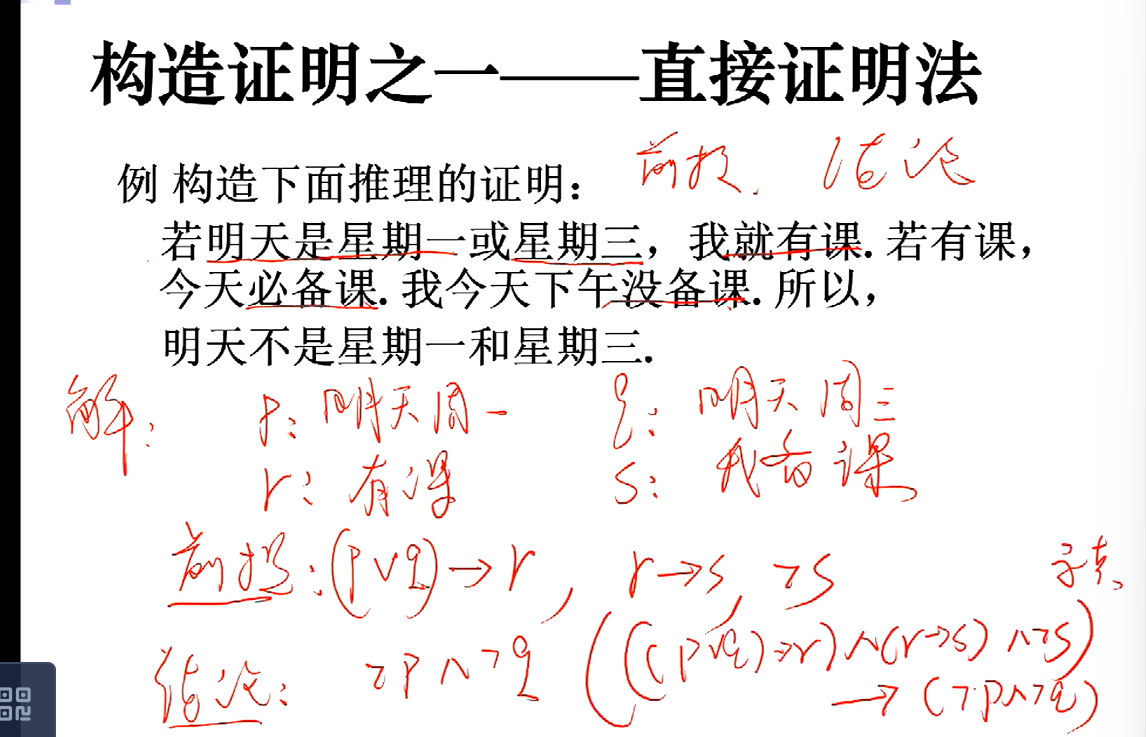 构造证明之一——直接证明法
前提. 结论
例 构造下面推理的证明：
若明天是星期一或星期三，我就有课. 若有课，
今天必备课. 我今天下午没备课. 所以，
明天不是星期一和星期三.
解: p: 明天周一 q: 明天周三
r: 有课 s: 我备课
前提: (p∨q)→r, r→s, ¬s
结论: ¬p∧¬q (((p∨q)→r)∧(r→s)∧¬s)
→(¬p∧¬q)